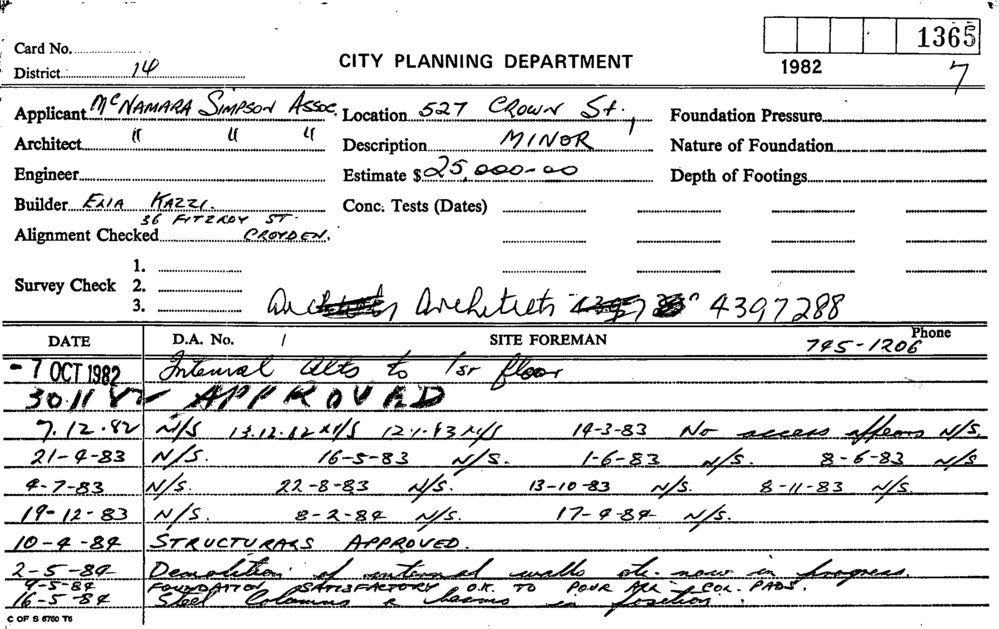 Card No. 1365
District 14 CITY PLANNING DEPARTMENT 1982 7
Applicant McNAMARA SIMPSON ASSOC. Location 527 CROWN St, Foundation Pressure
Architect " " " Description MINOR Nature of Foundation
Engineer Estimate $ 25,000-00 Depth of Footings
Builder ELIA KAZZI. Conc. Tests (Dates)
36 FITZROY ST.
Alignment Checked CROYDEN.
1.
Survey Check 2.
3. Architects 4397288
DATE D.A. No. / SITE FOREMAN Phone
745-1206
- 7 OCT 1982 Internal alts to 1st floor
30.11.82 APPROVED
7.12.82 N/S 13.12.82 N/S 12.1.83 N/S 14-3-83 No access appears N/S.
21-4-83 N/S. 16-5-83 N/S. 1-6-83 N/S. 8-6-83 N/S
4-7-83 N/S. 22-8-83 N/S. 13-10-83 N/S. 8-11-83 N/S.
19-12-83 N/S. 8-2-84 N/S. 17-4-84 N/S.
10-4-84 STRUCTURALS APPROVED.
2-5-84 Demolition of internal walls etc. now in progress.
9-5-84 FOUNDATION SATISFACTORY O.K. TO POUR ALL COL. PADS.
16-5-84 Steel Columns & beams in position.
C OF S 6760 T6